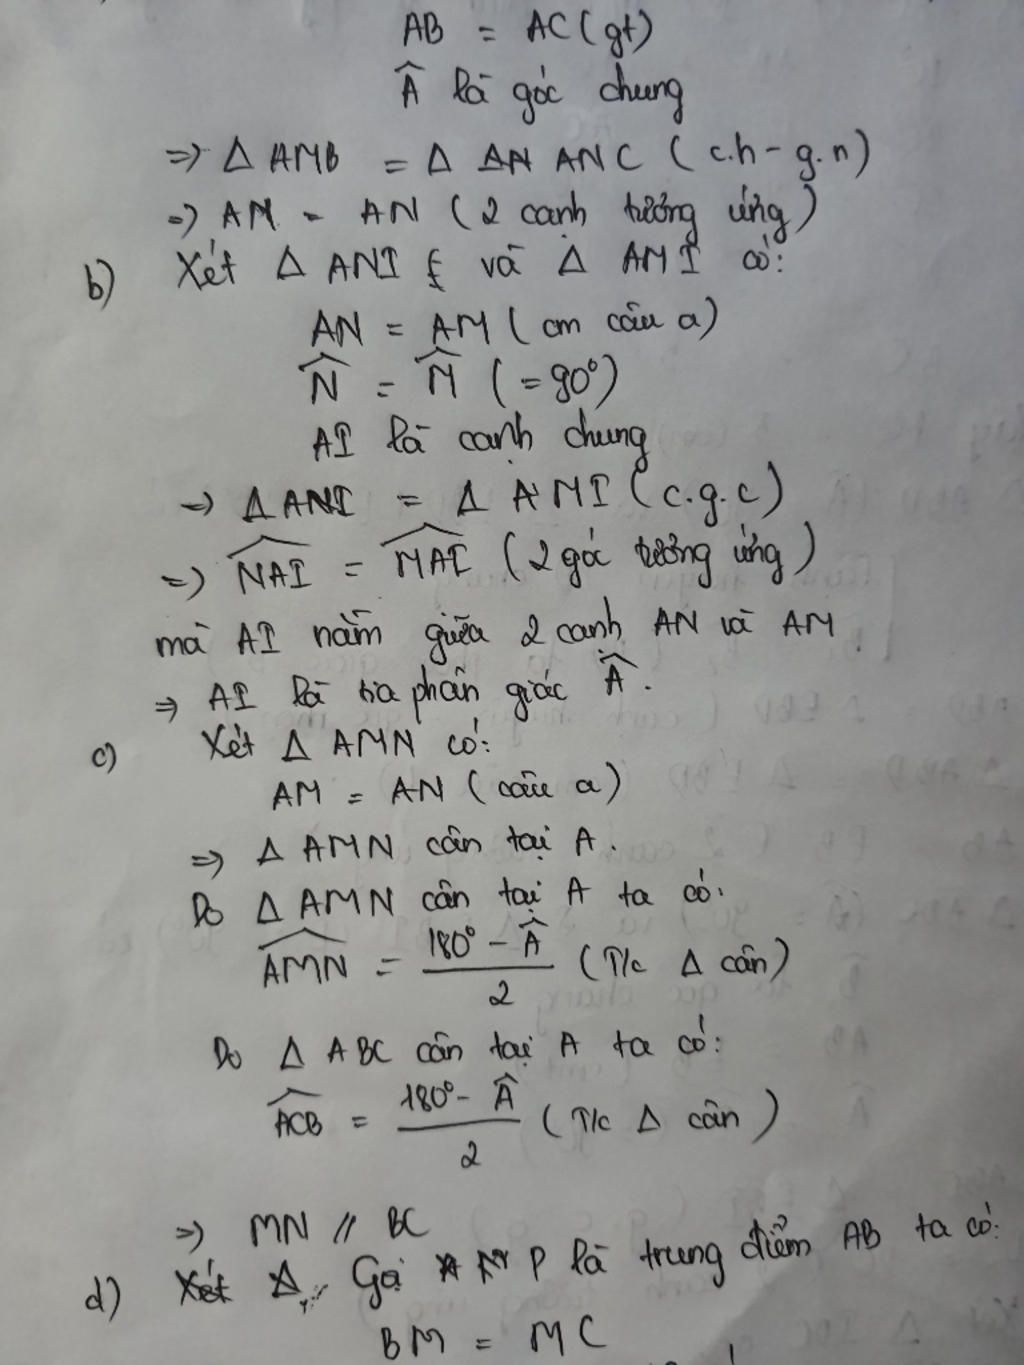 AB = AC (gt)
Â là góc chung
=> Δ AMB = Δ ANC (c.h - g.n)
=> AM = AN (2 cạnh tương ứng)
b) Xét Δ ANI và Δ AMI có:
AN = AM (cm câu a)
N̂ = M̂ (= 90°)
AI là cạnh chung
=> Δ ANI = Δ AMI (c.g.c)
=> NAI = MAI (2 góc tương ứng)
mà AI nằm giữa 2 cạnh AN và AM.
=> AI là tia phân giác Â.
c) Xét Δ AMN có:
AM = AN (câu a)
=> Δ AMN cân tại A.
Do Δ AMN cân tại A ta có:
AMN = 180° - Â / 2 (T/c Δ cân)
Do Δ ABC cân tại A ta có:
ACB = 180° - Â / 2 (T/c Δ cân)
=> MN // BC
d) Gọi P là trung điểm AB ta có:
BM = MC